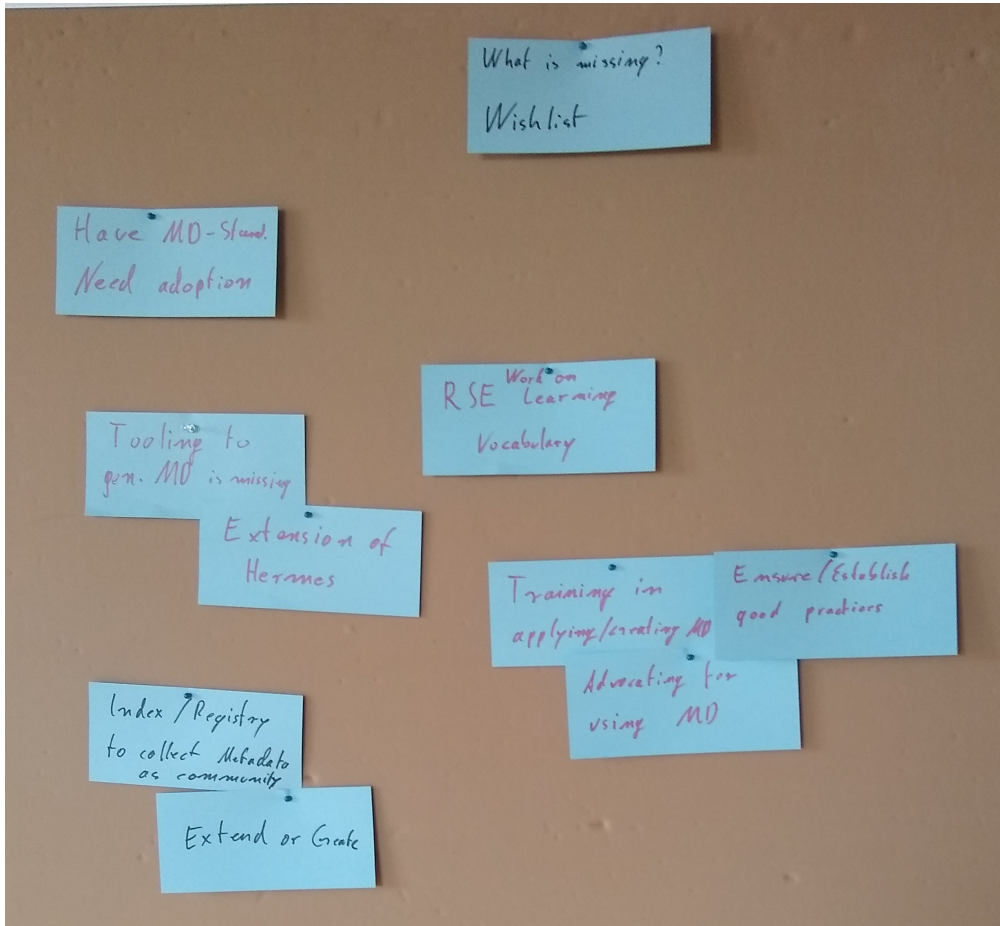 What is missing?
Wishlist
Have MD-Stand.
Need adoption
Work on
RSE Learning
Vocabulary
Tooling to
gen. MD is missing
Extension of
Hermes
Training in
applying/creating MD
Ensure/Establish
good practices
Advocating for
using MD
Index/Registry
to collect Metadata
as community
Extend or Create